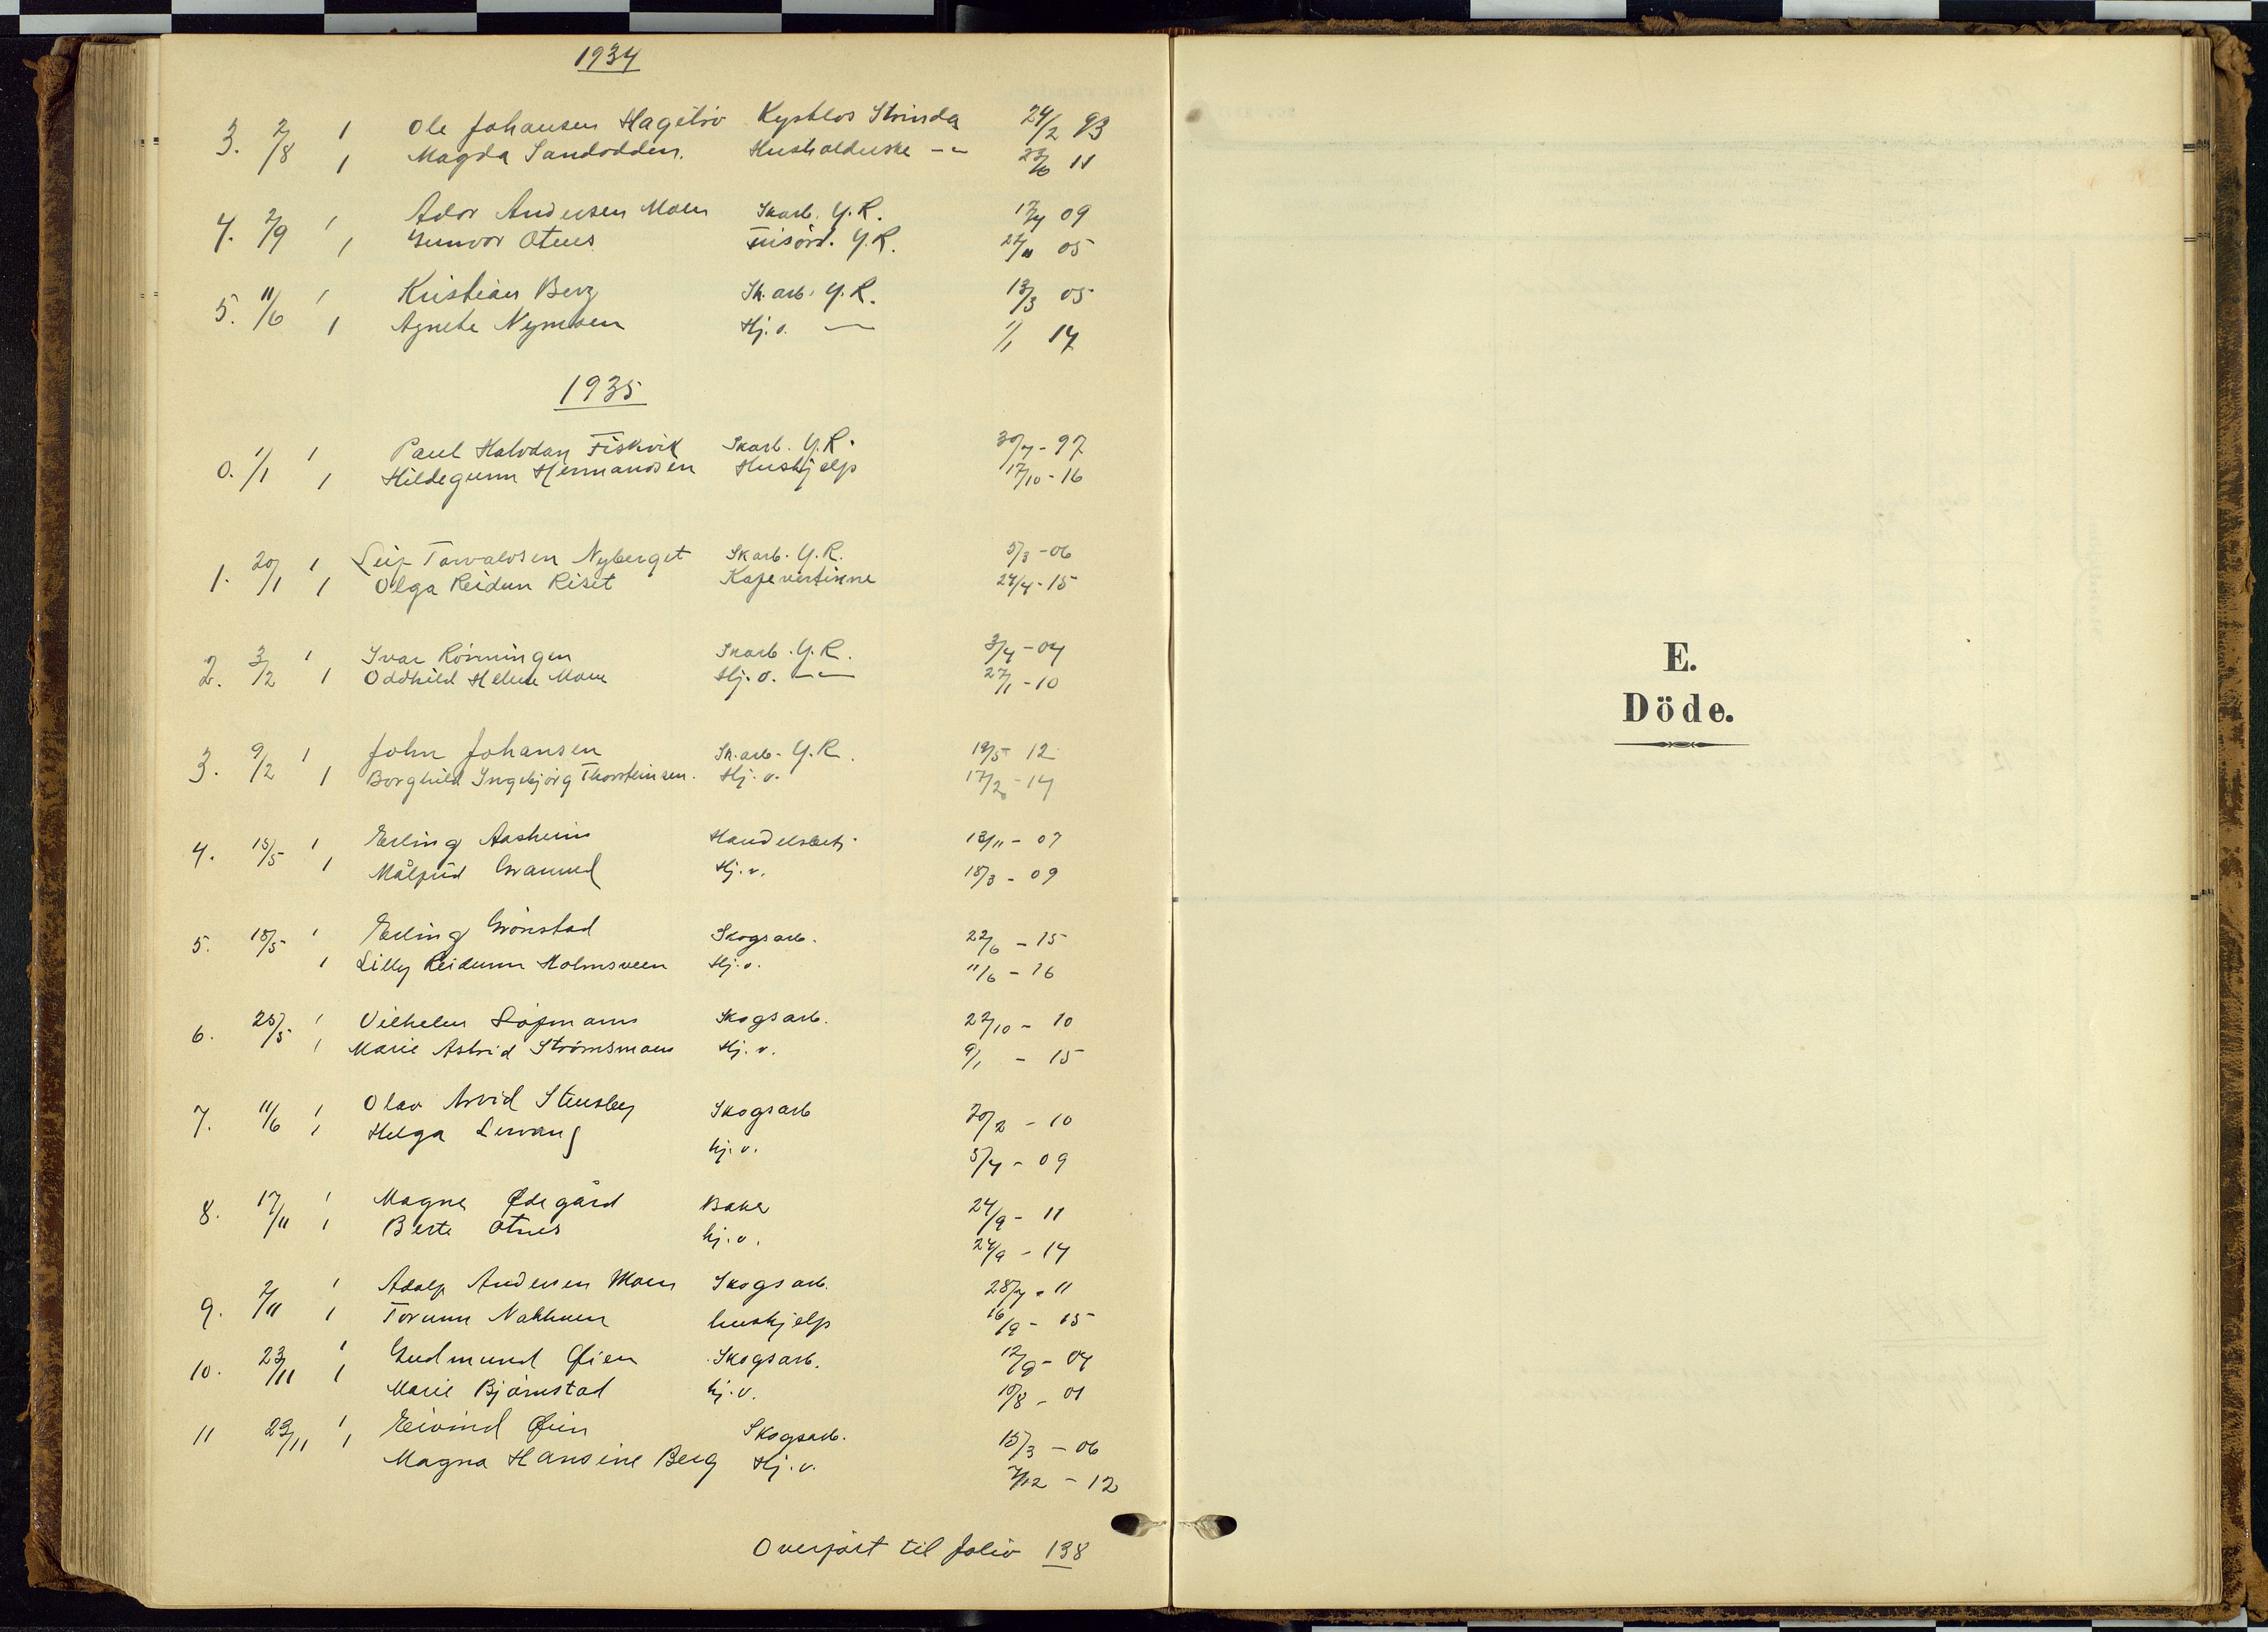 1934
3. 2/8 1 Ole Johansen Hagelio Kystlos Strinda 24/2 93
1 Magda Sandodden. Husholderske -"- 11
4. 2/9 1 Ador Andersen Moen Skarb. Y.R. 17/4 09
1 Gunvor Otnes Y.R. 05
5. 11/6 1 Kristian Berg Sk. arb. Y.R. 13/3 05
1 Agnete Nymoen Hj. v. — 1/1 14
1935
0. 1/1 1 Paul Halvdan Fiskvik Skarb. Y.R. 30/7 - 97
1 Hildegunn Hermansen Hushjelp 17/10 - 16
1. 20/1 1 Leif Torvaldsen Nyberget Skarb. Y.R. 5/3 - 06
1 Olga Reidun Riset Kafevertinne 24/4 - 15
2. 3/2 1 Ivar Rönningen Skarb. Y.R. 3/4 - 04
1 Oddhild Helene Moen Hj. v. -"- 27/1 - 10
3. 9/2 1 John Johansen Sk. arb. Y.R. 19/5 12
1 Borghild Ingebjørg Thorsteinsen. Hj. v. 17/2 - 14
4. 15/5 1 Erling Aasheim Handelsbetj. 13/11 - 07
1 Målfrid Hj. v. 18/3 - 09
5. 18/5 1 Erling Grönstad Skogsarb. 22/6 - 15
1 Lilly Reidunn Holmsveen Hj. v. 11/6 - 16
6. 25/5 1 Vilhelm Skogsarb. 22/10 - 10
1 Marie Astrid Strömsmoen Hj. v. 9/1 - 15
7. 11/6 1 Olav Arvid Stensby Skogsarb 20/2 - 10
1 Helga Levang
hj. v. 5/4 - 09
8. 17/11 1 Magne Ødegård Baker 24/9 - 11
1 Berte Otnes hj. v. 24/9 - 14
9. 2/11 1 Adolf Andersen Moen Skogsarb. 28/7 - 11
1 Torunn Nakkuen hushjelp 16/9 - 15
10. 23/11 1 Gudmund Øien Skogsarb. 12/9 - 04
1 Marie Bjørnstad hj. v. 10/8 - 01
11 23/11 1 Eivind Øien Skogsarb. 15/3 - 06
1 Magna Hansine Berg Hj. v. 7/12 - 12
Overført til folio 138
E.
Döde.